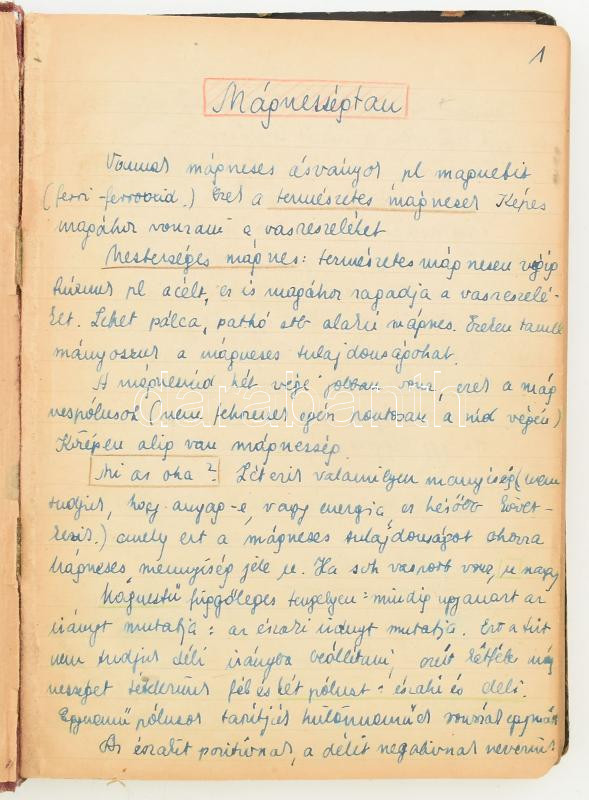 1
Mágnességtan
Vannak mágneses ásványok pl magnetit
(ferri-ferrooxid.) Ezek a természetes mágnesek Képes
magához vonzani a vasreszeléket
Mesterséges mágnes: természetes mágnesen végig
húzunk pl acélt, ez is magához ragadja a vasreszelé-
ket. Lehet pálca, patkó stb alakú mágnes. Ezeken tanul
mányozzuk a mágneses tulajdonságokat.
A mágnesrúd két vége jobban vonz, ezek a mág
nespólusok (nem fekszenek egész pontosan a rúd végén)
Középen alig van mágnesség.
Mi az oka? Létezik valamilyen mennyiség (nem
tudjuk, hogy anyag-e, vagy energia ez később követ-
kezik.) amely ezt a mágneses tulajdonságot okozza
Mágneses mennyiség jele μ. Ha sok vasport vonz, μ nagy
Mágnestű függőleges tengelyen: mindig ugyanazt az
irányt mutatja: az északi irányt mutatja. Ezt a tűt
nem tudjuk déli irányba beállítani, ezért kétféle mág
nességet tételezünk fel és két pólust: északi és déli.
Egynemű pólusok taszítják különneműek vonzzák egymást
Az északit pozitívnak, a délit negatívnak nevezzük
darabanth